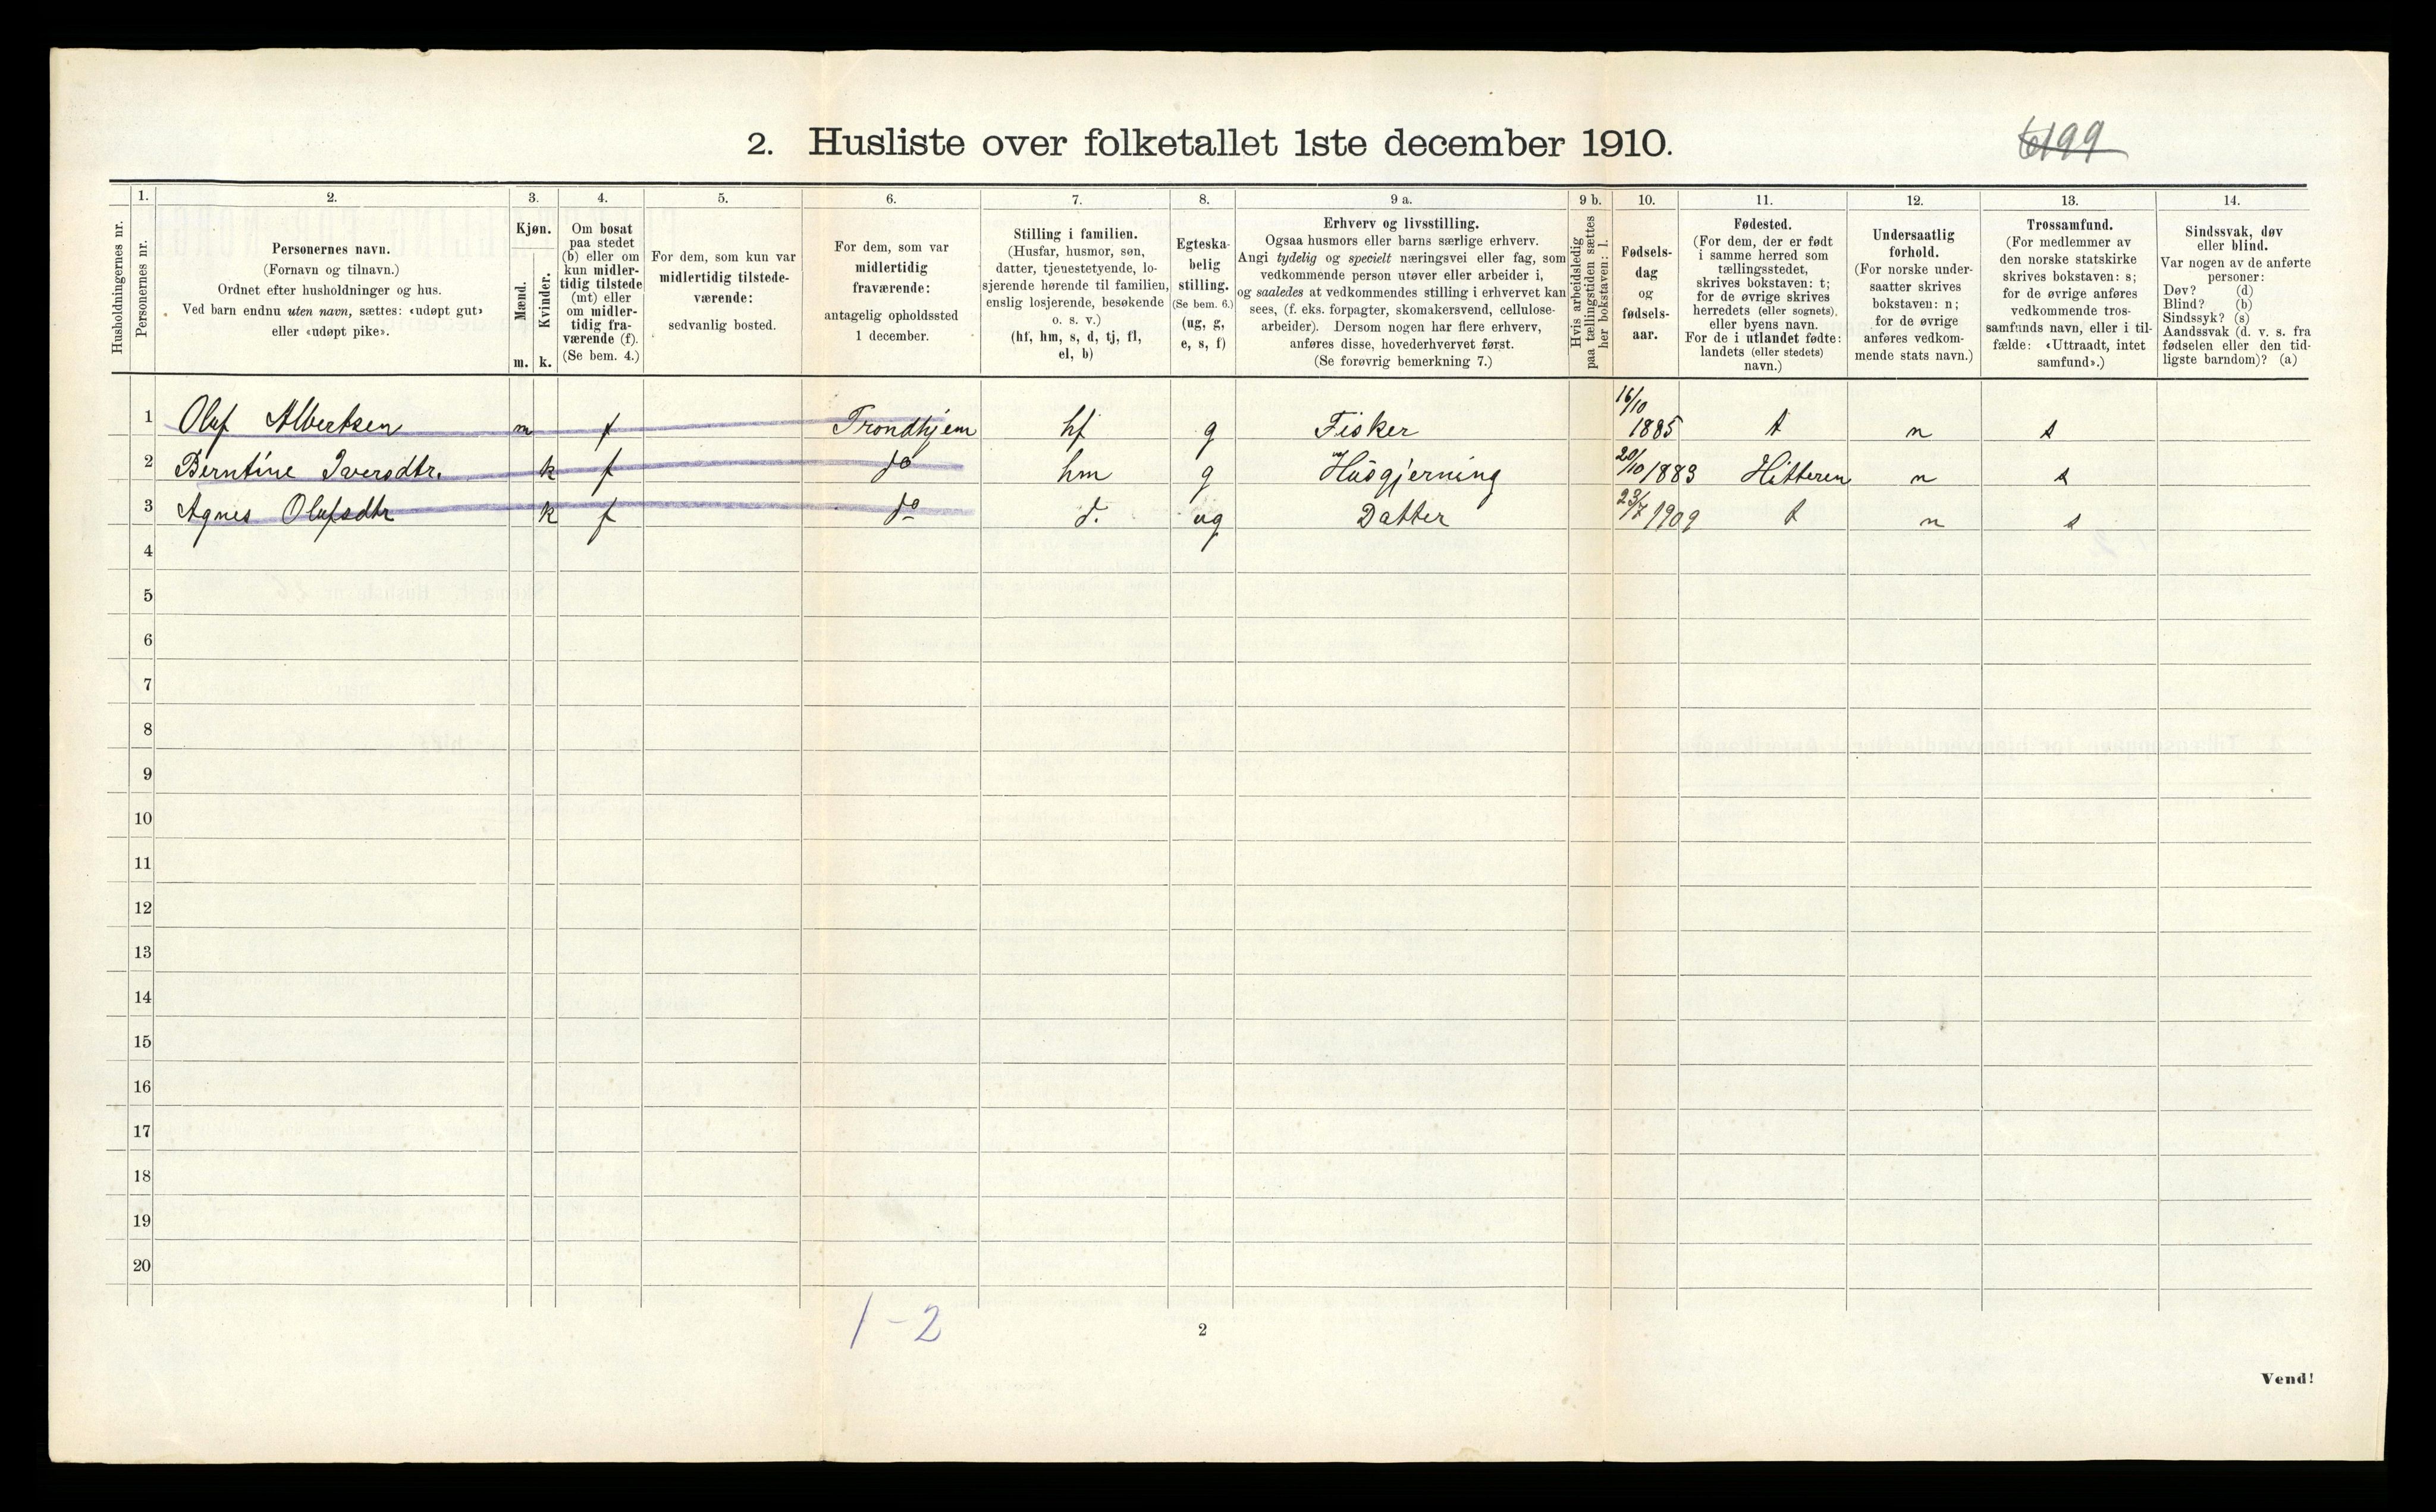 2. Husliste over folketallet 1ste december 1910.
6199
Husholdningernes nr.
1.
Personernes nr.
2.
Personernes navn.
(Fornavn og tilnavn.)
Ordnet efter husholdninger og hus.
Ved barn endnu uten navn, sættes: «udøpt gut»
eller «udøpt pike».
3.
Kjøn.
Mænd.
Kvinder.
m. k.
4.
Om bosat
paa stedet
(b) eller om
kun midler-
tidig tilstede
(mt) eller
om midler-
tidig fra-
værende (f).
(Se bem. 4.)
5.
For dem, som kun var
midlertidig tilstede-
værende:
sedvanlig bosted.
6.
For dem, som var
midlertidig
fraværende:
antagelig opholdssted
1 december.
7.
Stilling i familien.
(Husfar, husmor, søn,
datter, tjenestetyende, lo-
sjerende hørende til familien,
enslig losjerende, besøkende
o. s. v.)
(hf, hm, s, d, tj, fl,
el, b)
8.
Egteska-
belig
stilling.
(Se bem. 6.)
(ug, g,
e, s, f)
9 a.
Erhverv og livsstilling.
Ogsaa husmors eller barns særlige erhverv.
Angi tydelig og specielt næringsvei eller fag, som
vedkommende person utøver eller arbeider i,
og saaledes at vedkommendes stilling i erhvervet kan
sees, (f. eks. forpagter, skomakersvend, cellulose-
arbeider). Dersom nogen har flere erhverv,
anføres disse, hovederhvervet først.
(Se forøvrig bemerkning 7.)
9 b.
Hvis arbeidsledig
paa tællingstiden sættes
her bokstaven: l.
10.
Fødsels-
dag
og
fødsels-
aar.
11.
Fødested.
(For dem, der er født
i samme herred som
tællingsstedet,
skrives bokstaven: t;
for de øvrige skrives
herredets (eller sognets),
eller byens navn.
For de i utlandet fødte:
landets (eller stedets)
navn.)
12.
Undersaatlig
forhold.
(For norske under-
saatter skrives
bokstaven: n;
for de øvrige
anføres vedkom-
mende stats navn.)
13.
Trossamfund.
(For medlemmer av
den norske statskirke
skrives bokstaven: s;
for de øvrige anføres
vedkommende tros-
samfunds navn, eller i til-
fælde: «Uttraadt, intet
samfund».)
14.
Sindssvak, døv
eller blind.
Var nogen av de anførte
personer:
Døv? (d)
Blind? (b)
Sindssyk? (s)
Aandssvak (d. v. s. fra
fødselen eller den tid-
ligste barndom)? (a)
1 Oluf Albertsen m f Trondhjem hf g Fisker 16/10 1885 t n s
2 Berntine Iversdtr. k f do hm g Husgjerning 20/10 1883 Hitteren n s
3 Agnes Olufsdtr k f do d. ug Datter 23/7 1909 t n s
4
5
6
7
8
9
10
11
12
13
14
15
16
17
18
19
20
1-2
2
Vend!